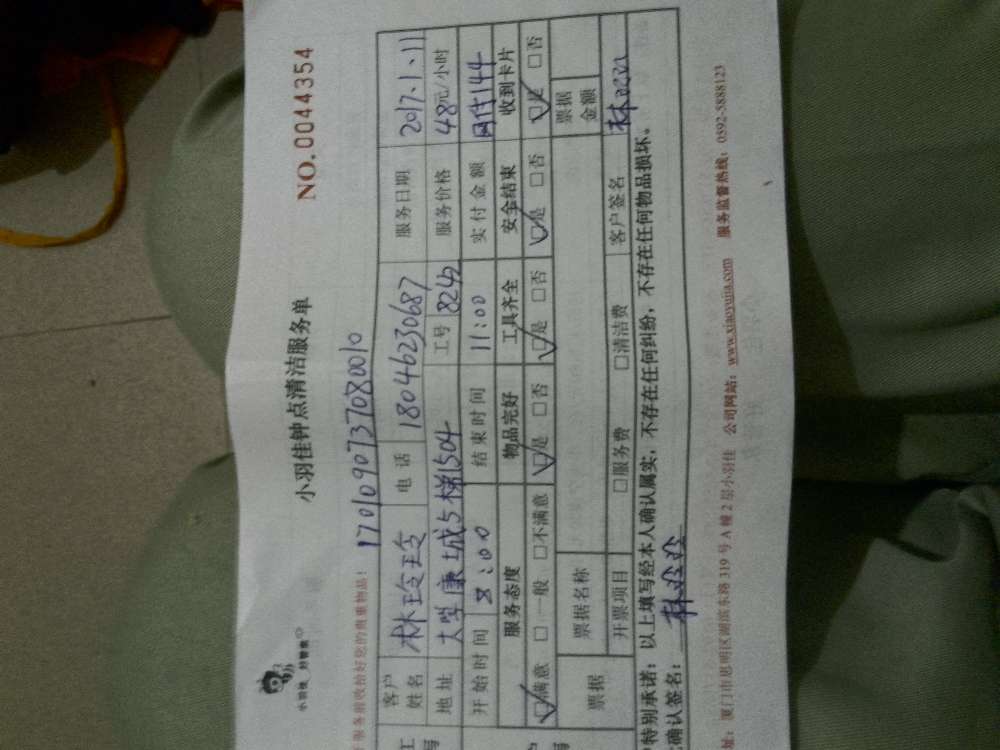 NO.0044354
小羽佳钟点清洁服务单
服务前收拾好您的贵重物品！ 1701090737080010
客户姓名 林玲玲 电话 18046230687 服务日期 2017.1.11
地址 大学康城5梯1504 工号 8245 服务价格 48元/小时
开始时间 8:00 结束时间 11:00 实付金额 网付144
服务态度 物品完好 工具齐全 安全结束 收到卡片
☑满意 □一般 □不满意 ☑是 □否 ☑是 □否 ☑是 □否 ☑是 □否
票据 票据名称 票据金额
开票项目 □服务费 □清洁费 客户签名 林玲玲
特别承诺：以上填写经本人确认属实，不存在任何纠纷，不存在任何物品损坏。
确认签名：林玲玲
址：厦门市思明区湖滨东路319号A幢2层小羽佳 公司网站：www.xiaoyujia.com 服务监督热线：0592-5888123